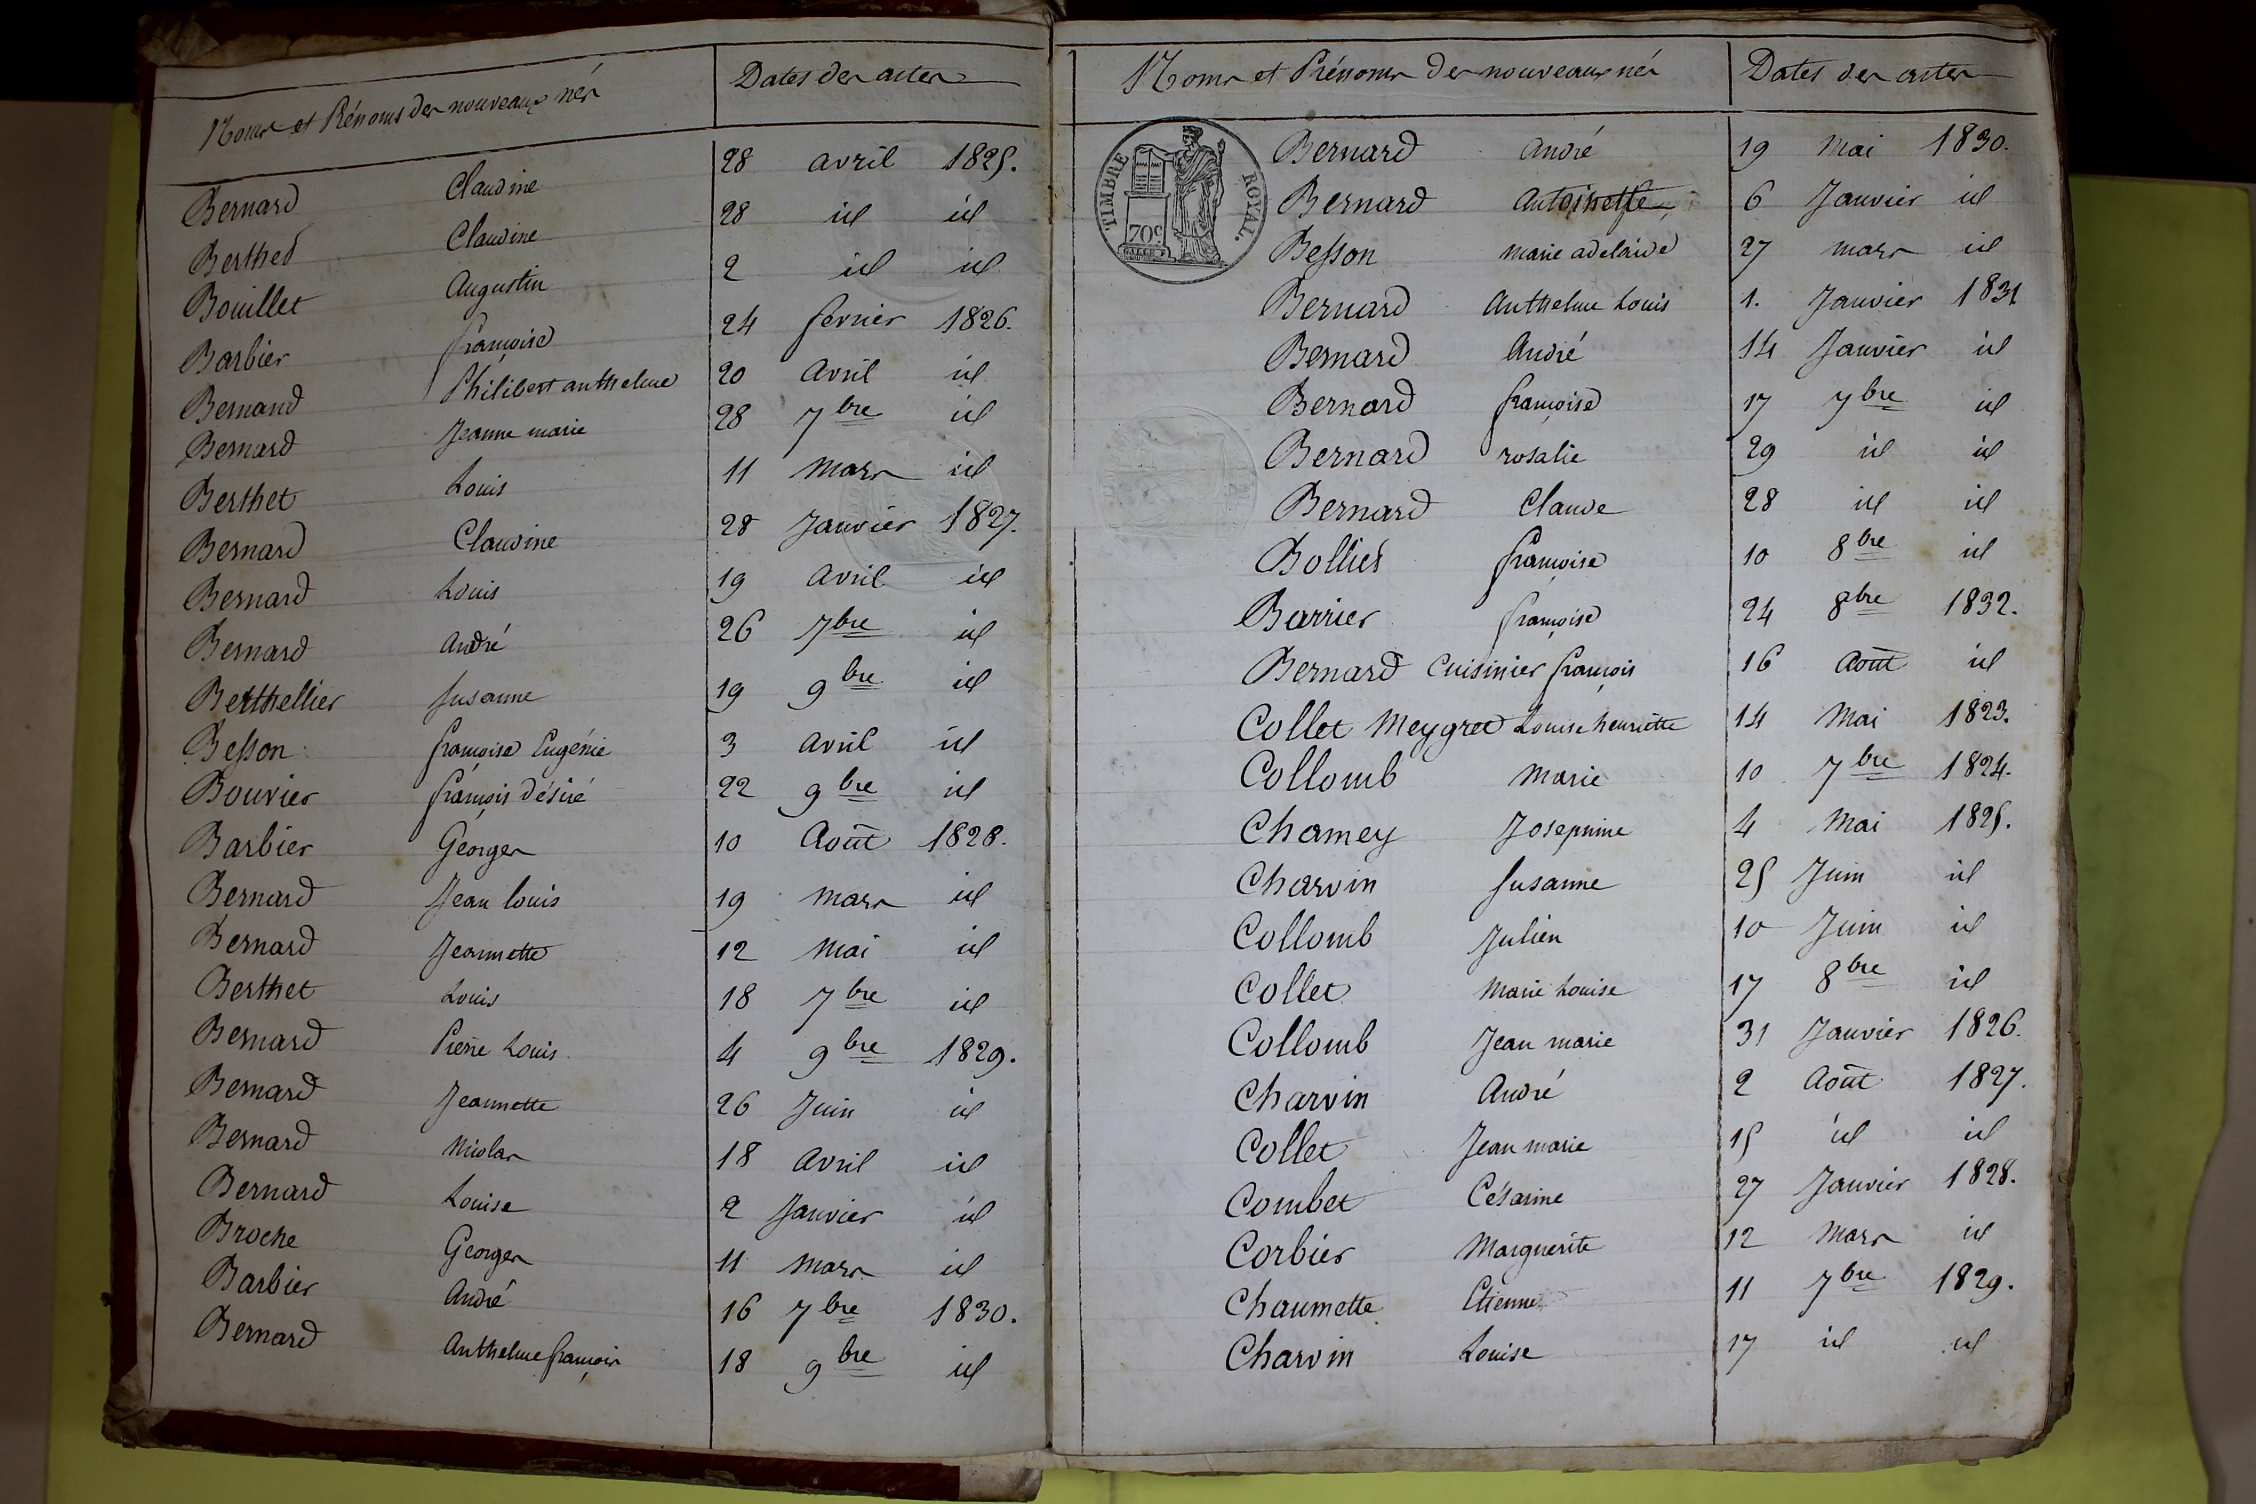 Noms et Prénoms des nouveaux nés Dates des actes
Bernard Claudine 28 avril 1825.
Berthet Claudine 28 id id
Bouillet Augustin 2 id id
Barbier françoise 24 fevrier 1826.
Bernard Philibert anthelme 20 Avril id
Bernard Jeanne marie 28 7bre id
Berthet Louis 11 Mars id
Bernard Claudine 28 Janvier 1827.
Bernard Louis 19 Avril id
Bernard André 26 7bre id
Berthellier Susanne 19 9bre id
Besson françoise Eugénie 3 Avril id
Bouvier françois désiré 22 9bre id
Barbier Georges 10 Août 1828.
Bernard Jean louis 19 Mars id
Bernard Jeannette 12 Mai id
Berthet Louis 18 7bre id
Bernard Pierre Louis 4 9bre 1829.
Bernard Jeannette 26 Juin id
Bernard Nicolas 18 Avril id
Bernard Louise 2 Janvier id
Broche Georges 11 Mars id
Barbier André 16 7bre 1830.
Bernard Anthelme françois 18 9bre id
Noms et Prénoms des nouveaux nés Dates des actes
TIMBRE ROYAL.
70c
Bernard André 19 Mai 1830.
Bernard Antoinette 6 Janvier id
Besson marie adelaide 27 mars id
Bernard Anthelme Louis 1. Janvier 1831
Bernard André 14 Janvier id
Bernard françoise 17 7bre id
Bernard rosalie 29 id id
Bernard Claude 28 id id
Bollier françoise 10 8bre id
Barrier françoise 24 8bre 1832.
Bernard Cuisinier françois 16 Août id
Collet Meygret Louise henriette 14 Mai 1823.
Collomb Marie 10 7bre 1824.
Chamey Josephine 4 Mai 1825.
Charvin Susanne 25 Juin id
Collomb Julien 10 Juin id
Collet Marie Louise 17 8bre id
Collomb Jean marie 31 Janvier 1826.
Charvin André 2 Août 1827.
Collet Jean marie 15 id id
Combet Césarine 27 Janvier 1828.
Corbier Marguerite 12 Mars id
Chaumette Etienne 11 7bre 1829.
Charvin Louise 17 id id